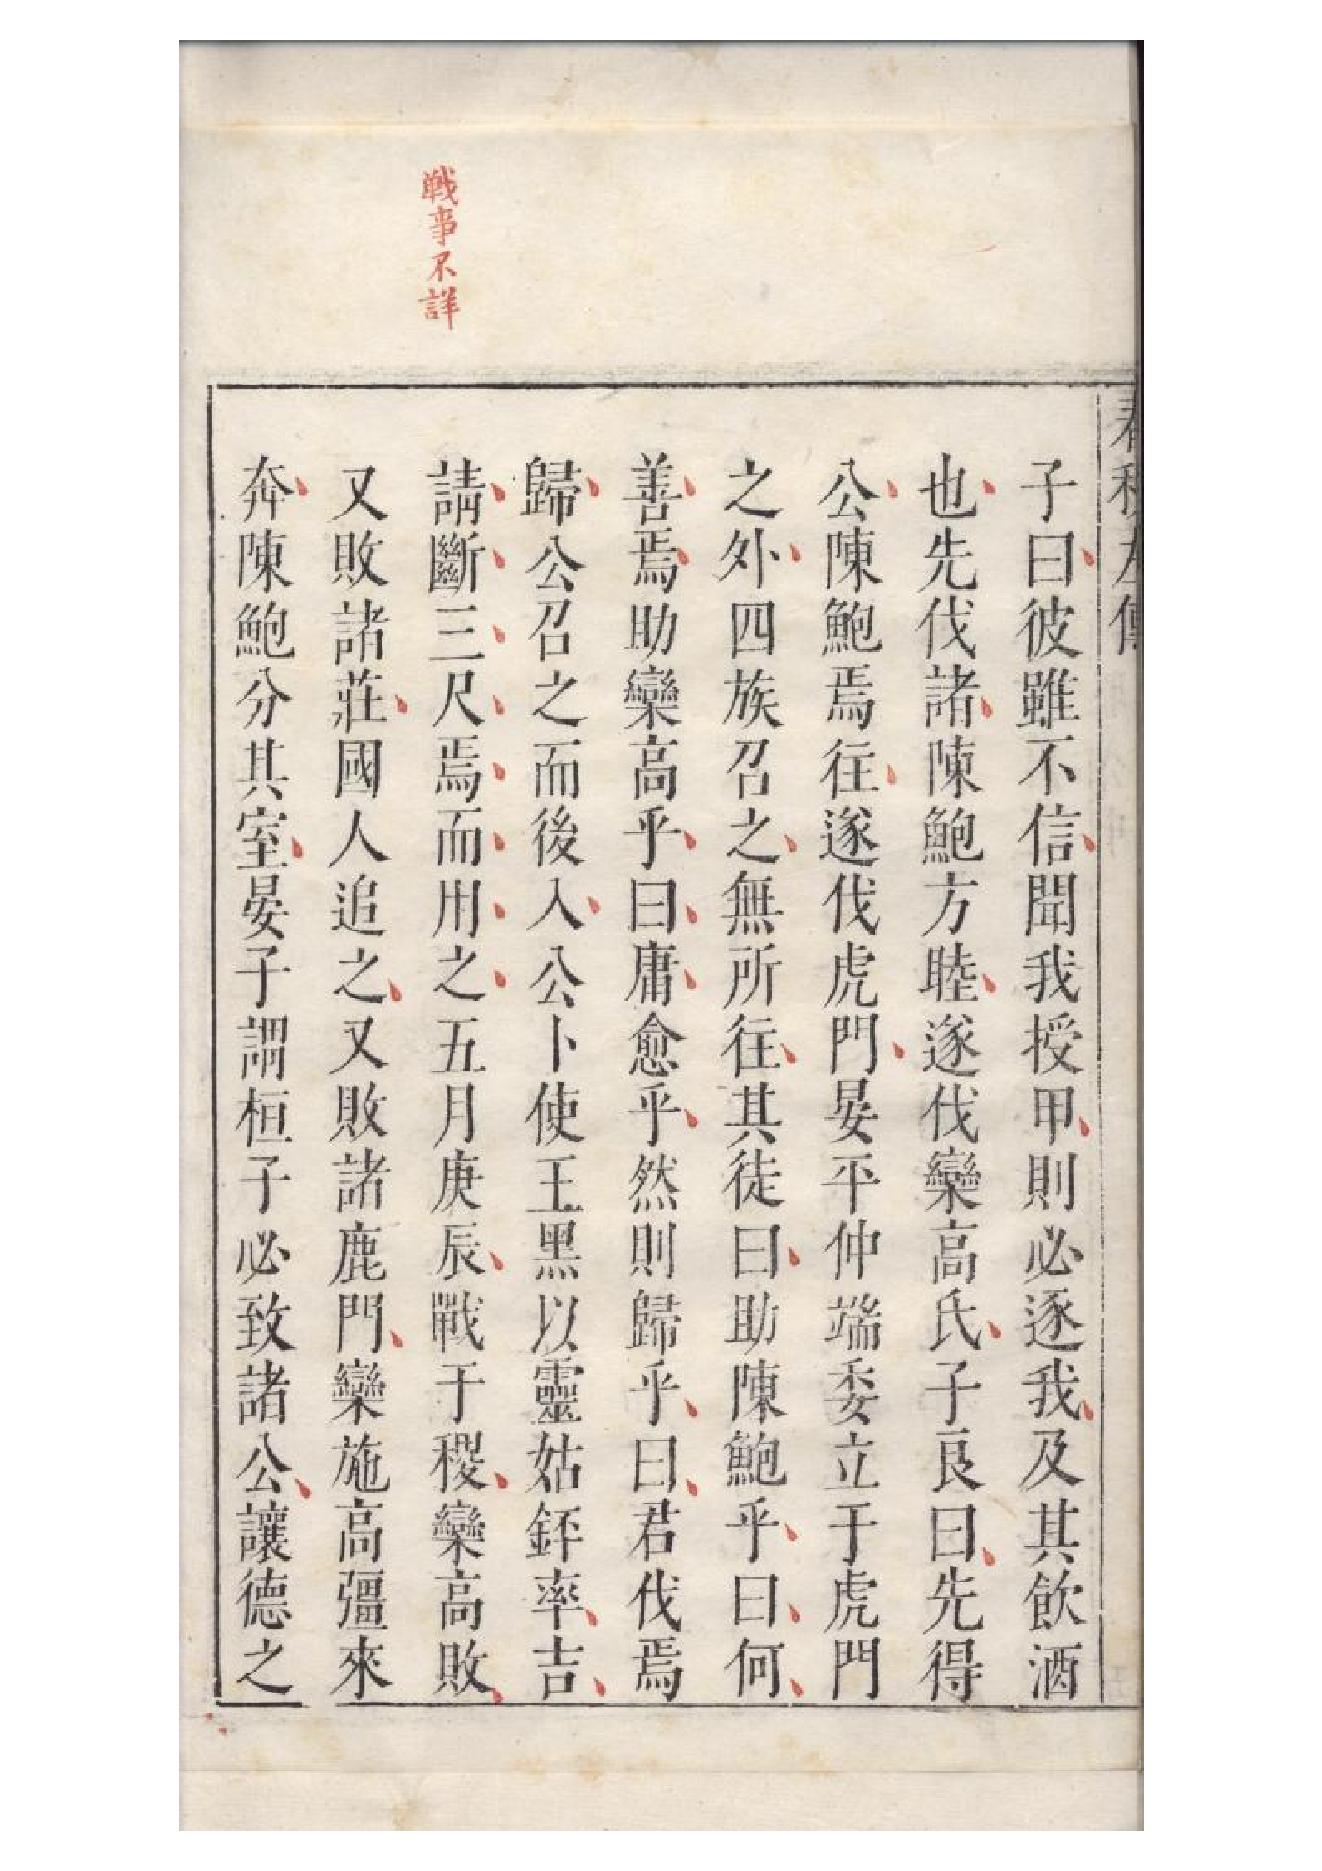 春秋左傳
子曰彼雖不信聞我授甲則必逐我及其飲酒
也先伐諸陳鮑方睦遂伐欒高氏子良曰先得
公陳鮑焉往遂伐虎門晏平仲端委立于虎門
之外四族召之無所往其徒曰助陳鮑乎曰何
善焉助欒高乎曰庸愈乎然則歸乎曰君伐焉
歸公召之而後入公卜使王黑以靈姑銔率吉
請斷三尺焉而用之五月庚辰戰于稷欒高敗
又敗諸莊國人追之又敗諸鹿門欒施高彊來
奔陳鮑分其室晏子謂桓子必致諸公讓德之
戦事不詳